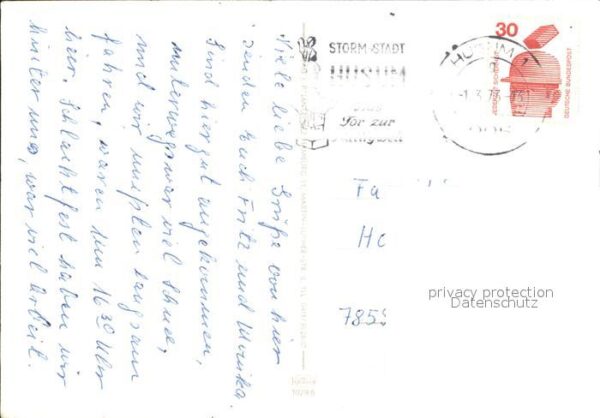 Viele liebe Grüße von hier
senden Euch Fritz und Monika.
Sind hier gut angekommen,
unterwegs war viel Schnee,
und wir mußten langsam
fahren, waren um 16 30 Uhr
hier. Schlachtfest haben wir
hinter uns, war viel Arbeit.
STORM-STADT
HUSUM
Das
Tor zur
HUSUM 1
-1.3.73
30
DEUTSCHE BUNDESPOST
Fa
Ho
785
privacy protection
Datenschutz